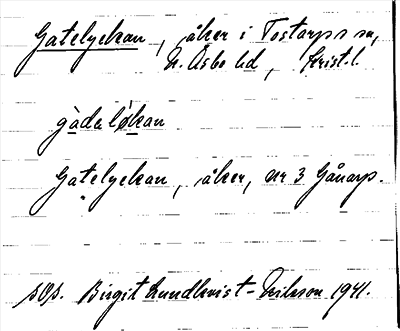 Gatelyckan, åker i Tostarps sn,
N. Åsbo hd, Krist. l.
gàdəlo̢kan
Gatelyckan, åker, nr 3 Gånarp.
Birgit Lundkvist-Nilsson 1941.